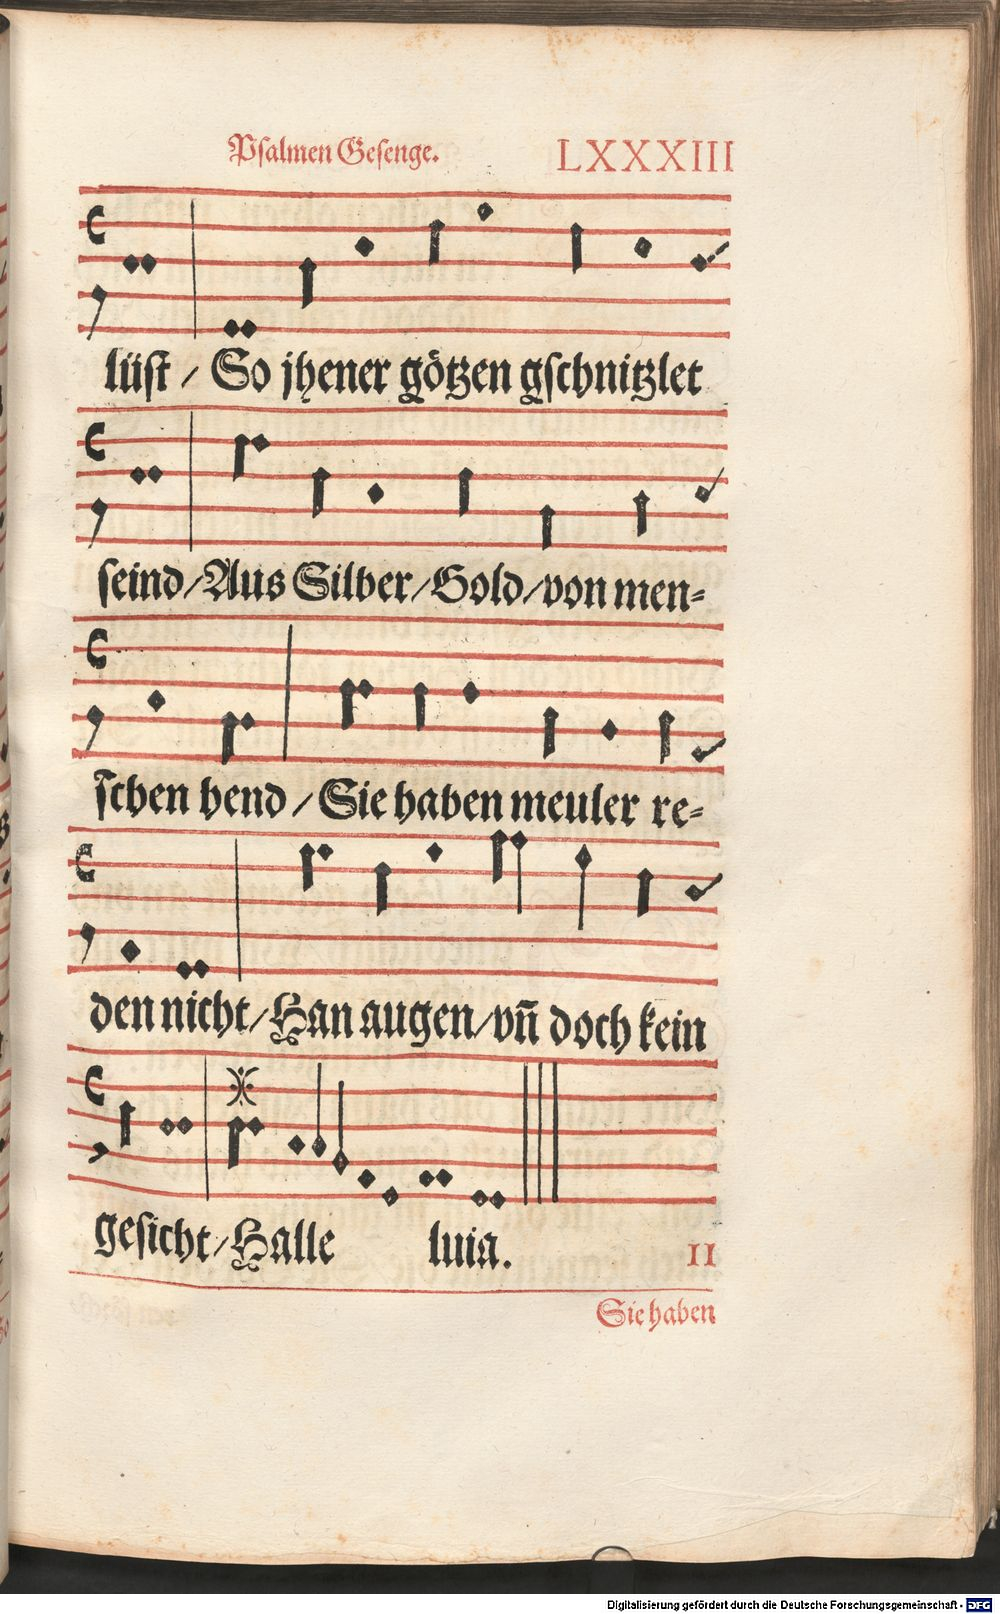 Psalmen Gesenge. LXXXIII
lüst / So jhener götzen gschnitzlet
seind / Aus Silber / Gold / von men⸗
schen hend / Sie haben meuler re⸗
den nicht / Han augen / vñ doch kein
gesicht / Halle luia. II
Sie haben
Digitalisierung gefördert durch die Deutsche Forschungsgemeinschaft - DFG